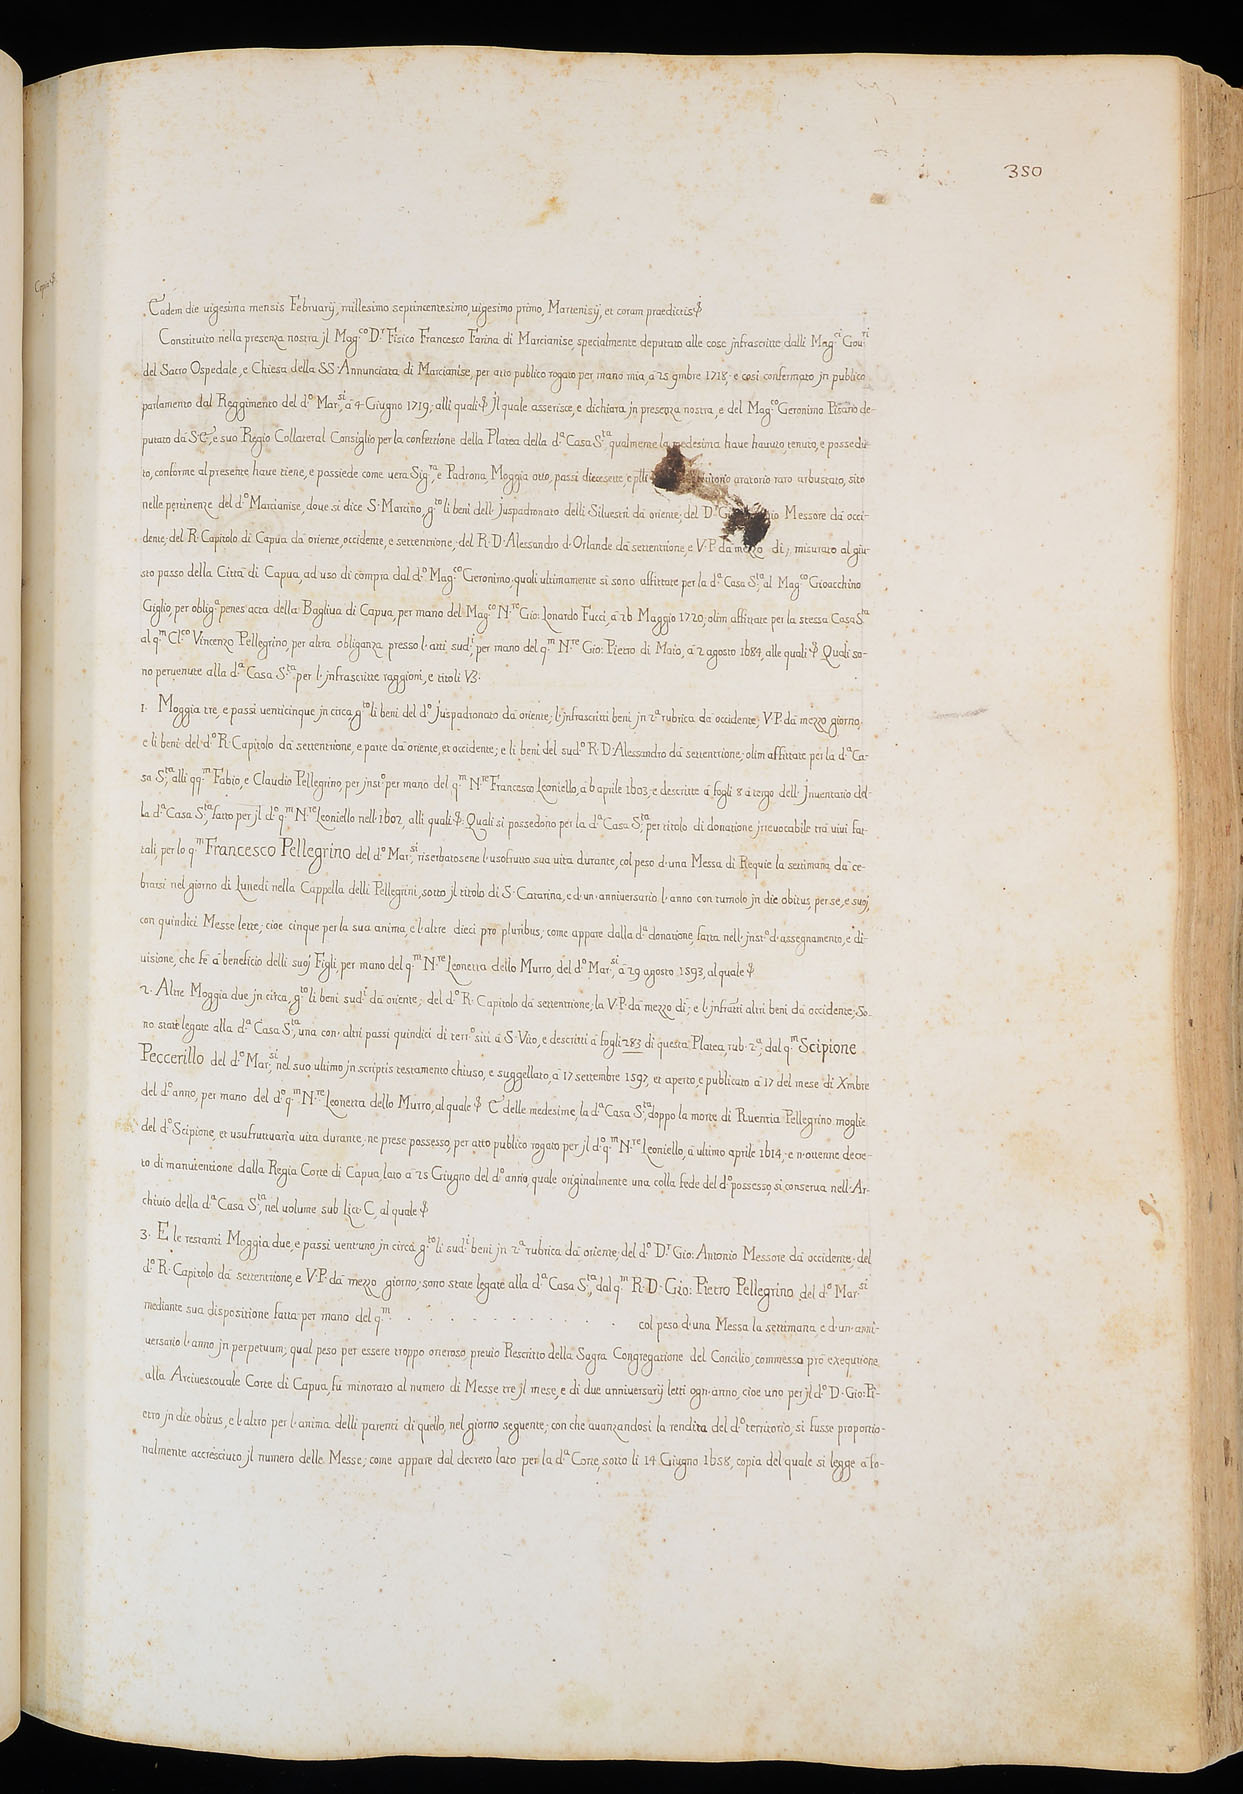 350
Copia
Eadem die uigesima mensis Februarij, millesimo septincentesimo, uigesimo primo, Martenisij, et coram praedictis
Constituito nella presenza nostra jl Mag.co D.r Fisico Francesco Farina di Marcianise, specialmente deputato alle cose jnfrascritte, dalli Mag.ci Gou.ri
del Sacro Ospedale, e Chiesa della SS. Annunciata di Marcianise, per atto publico rogato per mano mia, à 25 9mbre 1718, e così confermato jn publico
parlamento dal Reggimento del d.o Mar.si, à 4 Giugno 1719; alli quali jl quale asserisce, e dichiara jn presenza nostra, e del Mag.co Geronimo Pisano de-
putato da S.E., e suo Regio Collateral Consiglio per la confettione della Platea della d.a Casa S.ta, qualmente la medesima haue hauuto, tenuto, e possedu-
to, conforme al presente haue tiene, e possiede come uera Sig.ra, e Padrona, Moggia otto, passi diecesette, e aratorio raro arbustato, sito
nelle pertinenze del d.o Marcianise, doue si dice S. Martino, g.to li beni dell' Juspadronato delli Siluestri da oriente; del D.r Messore da occi-
dente; del R. Capitolo di Capua da oriente, occidente, e settentrione; del R. D. Alessandro d'Orlande da settentrione, e V.P. da mezzo dì; misurato al giu-
sto passo della Città di Capua, ad uso di compra dal d.o Mag.co Geronimo; quali ultimamente si sono affittate per la d.a Casa S.ta al Mag.co Gioacchino
Giglio, per oblig.a penes acta della Bagliua di Capua, per mano del Mag.co N.re Gio: Lonardo Fucci, à 26 Maggio 1720, olim affittate per la stessa Casa S.ta
al q.m Cl.co Vincenzo Pellegrino, per altra obliganza presso l'atti sud.i, per mano del q.m N.re Gio: Pietro di Maio, à 2 agosto 1684, alle quali Quali so-
no peruenute alla d.a Casa S.ta per l'jnfrascritte raggioni, e titoli V3.
1. Moggia tre, e passi uenticinque jn circa, g.to li beni del d.o Juspadronato da oriente; l'jnfrascritti beni jn 2.a rubrica da occidente; V.P. da mezzo giorno;
e li beni del d.o R. Capitolo da settentrione, e parte da oriente, et occidente; e li beni del sud.o R. D. Alessandro da settentrione; olim affittate per la d.a Ca-
sa S.ta alli qq.m Fabio, e Claudio Pellegrino, per jnst.o per mano del q.m N.re Francesco Leoniello, à 6 aprile 1603, e descritte à fogli 8 à tergo dell' Jnuentario del-
la d.a Casa S.ta fatto per jl d.o q.m N.re Leoniello nell' 1602, alli quali Quali si possedono per la d.a Casa S.ta per titolo di donatione jrreuocabile trà uiui fat-
tali, per lo q.m Francesco Pellegrino del d.o Mar.si riserbatosene l'usofrutto sua uita durante, col peso d'una Messa di Requie la settimana da ce-
brarsi nel giorno di Lunedì nella Cappella delli Pellegrini, sotto jl titolo di S. Catarina, e d'un' anniuersario l'anno con tumolo jn die obitus, per se, e suoj,
con quindici Messe lette; cioe cinque per la sua anima, e l'altre dieci pro pluribus; come appare dalla d.a donatione, fatta nell' jnst.o d'assegnamento, e di-
uisione, che fè à beneficio delli suoj Figli, per mano del q.m N.re Leonetta dello Murro, del d.o Mar.si, à 29 agosto 1593, al quale
2. Altre Moggia due jn circa, g.to li beni sud.i da oriente; del d.o R. Capitolo da settentrione; la V.P. da mezzo dì; e l'jnfratti altri beni da occidente; So-
no state legate alla d.a Casa S.ta, una con altri passi quindici di terr.o siti à S. Vito, e descritti à fogli 283 di questa Platea, rub. 2.a, dal q.m Scipione
Peccerillo del d.o Mar.si, nel suo ultimo jn scriptis testamento chiuso, e suggellato, à 17 settembre 1597, et aperto, e publicato à 17 del mese di Xmbre
del d.o anno, per mano del d.o q.m N.re Leonetta dello Murro, al quale E delle medesime, la d.a Casa S.ta, doppo la morte di Ruentia Pellegrino moglie
del d.o Scipione, et usufruttuaria uita durante, ne prese possesso, per atto publico rogato per jl d.o q.m N.re Leoniello, à ultimo aprile 1614, e n'ottenne decre-
to di manutentione dalla Regia Corte di Capua, lato à 25 Giugno del d.o anno, quale originalmente una colla fede del d.o possesso, si conserua nell' Ar-
chiuio della d.a Casa S.ta, nel uolume sub Litt. C, al quale
3. E le restanti Moggia due, e passi uent'uno jn circa, g.to li sud.i beni jn 2.a rubrica da oriente; del d.o D.r Gio: Antonio Messore da occidente; del
d.o R. Capitolo da settentrione, e V.P. da mezzo giorno; sono state legate alla d.a Casa S.ta, dal q.m R. D. Gio: Pietro Pellegrino del d.o Mar.si
mediante sua dispositione fatta per mano del q.m . . . . . . . . . . . col peso d'una Messa la settimana, e d'un' anni-
uersario l'anno jn perpetuum; qual peso per essere troppo oneroso, preuio Rescritto della Sagra Congregatione del Concilio, commesso pro exequtione
alla Arciuescouale Corte di Capua, fù minorato al numero di Messe tre jl mese, e di due anniuersarij letti ogn' anno, cioe uno per jl d.o D. Gio: Pi-
etro jn die obitus, e l'altro per l'anima delli parenti di quello, nel giorno seguente; con che auanzandosi la rendita del d.o territorio, si fusse proportio-
nalmente accresciuto jl numero delle Messe; come appare dal decreto lato per la d.a Corte, sotto li 14 Giugno 1658, copia del quale si legge à fo-